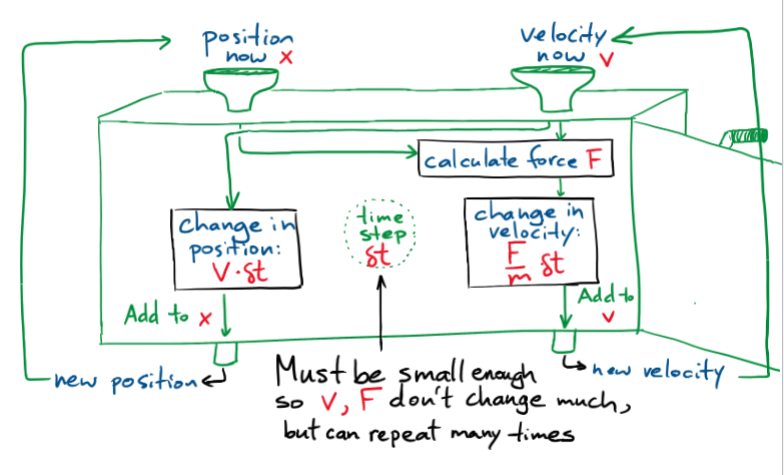 position
now x
velocity
now v
calculate force F
change in
position:
V·δt
time
step
δt
change in
velocity:
F/m δt
Add to x
Add to
v
new position
new velocity
Must be small enough
so V, F don't change much,
but can repeat many times